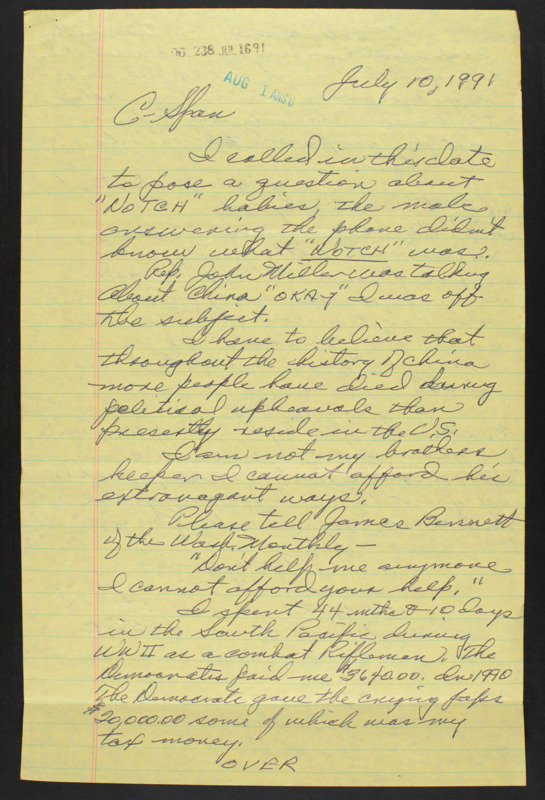 238 JUL 16 91
AUG 1 ANS'D
July 10, 1991
C-Span
I called in this date
to pose a question about
"NOTCH" babies, the male
answering the phone didn't
know what "NOTCH" was?
Rep. John Miller was talking
about China "OKA-y" I was off
the subject.
I have to believe that
throughout the history of China
more people have died during
political upheavals than
presently reside in the U.S.
I am not my brothers
keeper I cannot afford his
extravagant ways.
Please tell James Bennett
of the Wash. Monthly –
"Don't help me anymore
I cannot afford your help."
I spent 44 mths & 10 days
in the South Pacific during
WW II as a combat Rifleman. The
Democrats paid me $3640.00. In 1990
The Democrats gave the crying Japs
$20,000.00 some of which was my
tax money.
OVER